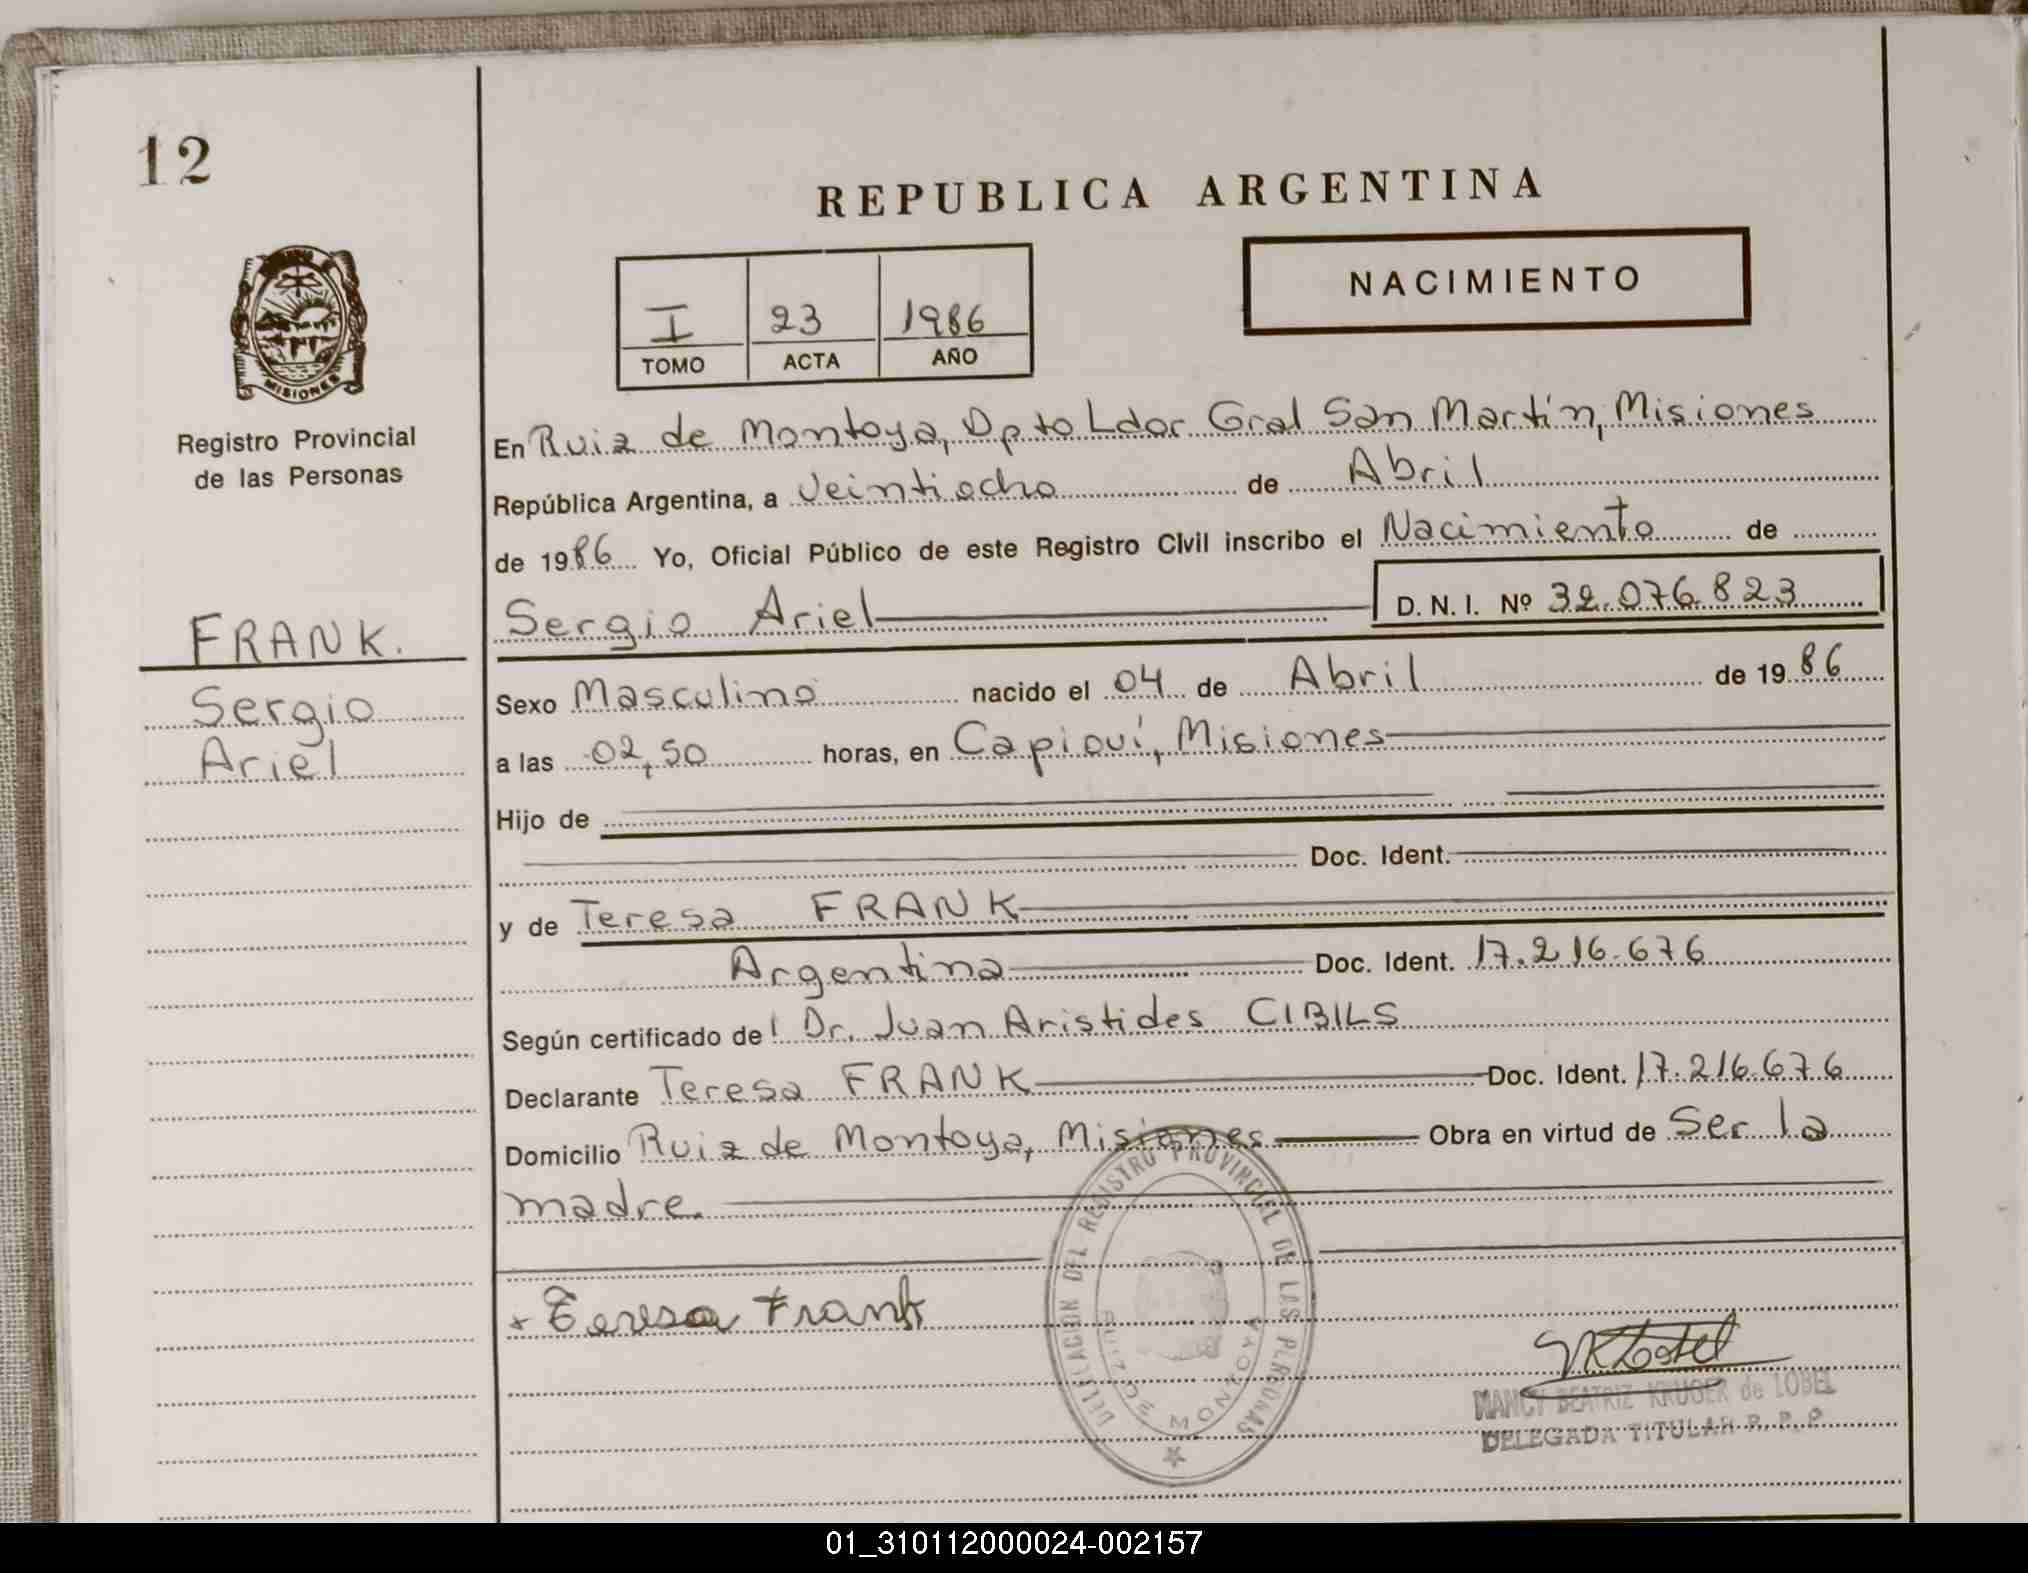 12
REPUBLICA ARGENTINA
NACIMIENTO
I 23 1986
TOMO ACTA AÑO
MISIONES
Registro Provincial
de las Personas
FRANK.
Sergio
Ariel
En Ruiz de Montoya, Dpto Ldor Gral San Martín, Misiones
República Argentina, a veintiocho de Abril
de 1986 Yo, Oficial Público de este Registro Civil inscribo el Nacimiento de
Sergio Ariel D. N. I. Nº 32.076.823
Sexo Masculino nacido el 04 de Abril de 1986
a las 02,50 horas, en Capioví, Misiones
Hijo de
Doc. Ident.
y de Teresa FRANK
Argentina Doc. Ident. 17.216.676
Según certificado de Dr. Juan Aristides CIBILS
Declarante Teresa FRANK Doc. Ident. 17.216.676
Domicilio Ruiz de Montoya, Misiones Obra en virtud de Ser la
madre.
Teresa Frank
DELEGACION DEL REGISTRO PROVINCIAL DE LAS PERSONAS
RUIZ DE MONTOYA
NANCY BEATRIZ KRUGER de LOBEL
DELEGADA TITULAR R. P. P.
01_310112000024-002157